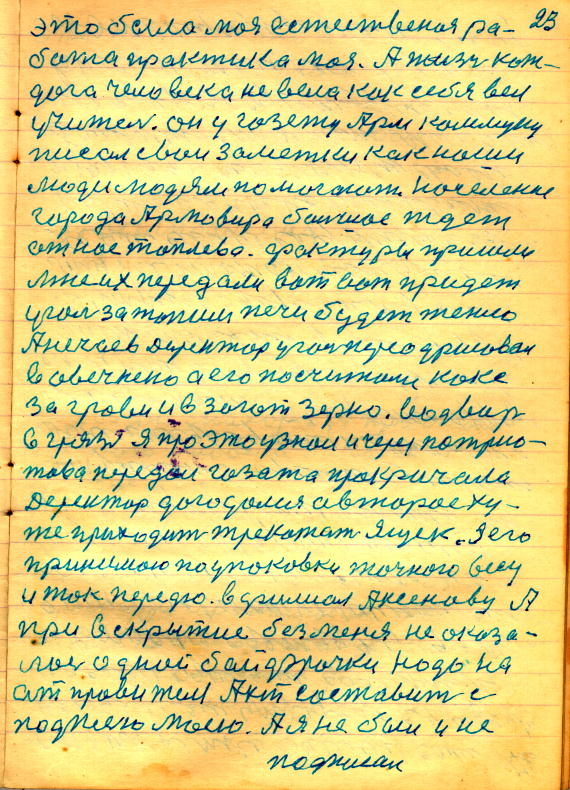 23
это было моя естественая ра-
бота практика моя. А жизн каж-
дога человека не вела как себя вел
учител. он у газету Арм коммуну
писал свои заметки как наши
люди людям помогают. Население
города Армовира бачное ждет
отное топлева. фактуры пришли
мне их передали вот вот придет
угол затопим печи будет тепло
А Нечаев директор угол
в овечнено а его посчитали како
за гровы и в золот зерно. во двор
в грязь я про это узнал и через потрио-
това передал газата прокричала
Директор догодался а второе ху-
же приходит трекотат ящек. Я его
принимаю по упоковки точного весу
и так передю. в филиал Аксенову А
при вскрытие без меня не оказа-
лос одной бай надо на
отправител Акт составит с
подписю моею. А я не был и не
подписал